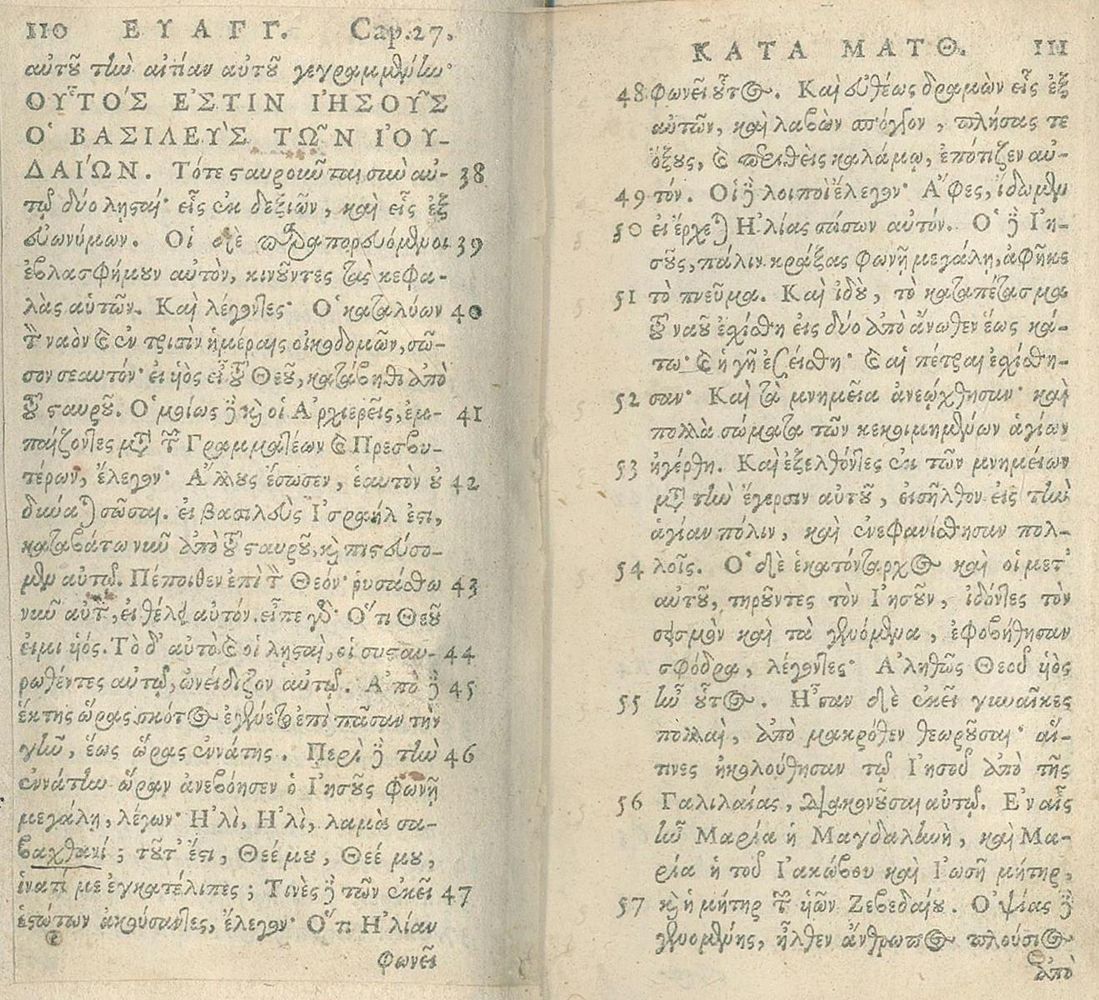 110 ΕΥΑΓΓ. Cap.27.
αὐτοῦ τὴν αἰτίαν αὐτοῦ γεγραμμένην·
ΟΥ͂ΤΟ'Σ Ε'ΣΤΙΝ Ι'ΗΣΟΥ͂Σ
Ο' ΒΑΣΙΛΕΥ'Σ ΤΩ͂Ν Ι'ΟΥ-
ΔΑΙ'ΩΝ. Τότε σαυροῦνται σὺν αὐ- 38
τῷ δύο λῃσταί· εἷς ἐκ δεξιῶν, καὶ εἷς ἐξ
εὐωνύμων. Οἱ δὲ παραπορευόμενοι 39
ἐβλασφήμουν αὐτὸν, κινοῦντες τὰς κεφα-
λὰς αὑτῶν. Καὶ λέγοντες· Ὁ καταλύων 40
τὸν ναὸν καὶ ἐν τρισὶν ἡμέραις οἰκοδομῶν, σῶ-
σον σεαυτόν· εἰ υἱὸς εἶ τοῦ Θεοῦ, κατάβηθι ἀπὸ
τοῦ σταυροῦ. Ὁμοίως δὲ καὶ οἱ Ἀρχιερεῖς, ἐμ- 41
παίζοντες μετὰ τῶν Γραμματέων καὶ Πρεσβυ-
τέρων, ἔλεγον· Ἄλλους ἔσωσεν, ἑαυτὸν οὐ 42
δύναται σῶσαι. εἰ βασιλεὺς Ἰσραήλ ἐστι,
καταβάτω νῦν ἀπὸ τοῦ σταυροῦ, καὶ πιστεύσο-
μεν αὐτῷ. Πέποιθεν ἐπὶ τὸν Θεόν· ῥυσάσθω 43
νῦν αὐτὸν, εἰ θέλει αὐτόν. εἶπε γάρ· Ὅτι Θεοῦ
εἰμι υἱός. Τὸ δ' αὐτὸ καὶ οἱ λῃσταὶ, οἱ συσταυ- 44
ρωθέντες αὐτῷ, ὠνείδιζον αὐτῷ. Ἀπὸ δὲ 45
ἕκτης ὥρας σκότος ἐγένετο ἐπὶ πᾶσαν τὴν
γῆν, ἕως ὥρας ἐννάτης. Περὶ δὲ τὴν 46
ἐννάτην ὥραν ἀνεβόησεν ὁ Ἰησοῦς φωνῇ
μεγάλῃ, λέγων· Ἠλὶ, Ἠλὶ, λαμὰ σα-
βαχθανί; τοῦτ' ἔστι, Θεέ μου, Θεέ μου,
ἱνατί με ἐγκατέλιπες; Τινὲς δὲ τῶν ἐκεῖ 47
ἑστώτων ἀκούσαντες, ἔλεγον· Ὅτι Ἠλίαν
φωνεῖ
ΚΑΤΑ ΜΑΤΘ. 111
48 φωνεῖ οὗτος. Καὶ εὐθέως δραμὼν εἷς ἐξ
αὐτῶν, καὶ λαβὼν σπόγγον, πλήσας τε
ὄξους, καὶ περιθεὶς καλάμῳ, ἐπότιζεν αὐ-
49 τόν. Οἱ δὲ λοιποὶ ἔλεγον· Ἄφες, ἴδωμεν
50 εἰ ἔρχεται Ἠλίας σώσων αὐτόν. Ὁ δὲ Ἰη-
σοῦς, πάλιν κράξας φωνῇ μεγάλῃ, ἀφῆκε
51 τὸ πνεῦμα. Καὶ ἰδοὺ, τὸ καταπέτασμα
τοῦ ναοῦ ἐσχίσθη εἰς δύο ἀπὸ ἄνωθεν ἕως κά-
τω· καὶ ἡ γῆ ἐσείσθη· καὶ αἱ πέτραι ἐσχίσθη-
52 σαν· Καὶ τὰ μνημεῖα ἀνεῴχθησαν· καὶ
πολλὰ σώματα τῶν κεκοιμημένων ἁγίων
53 ἠγέρθη. Καὶ ἐξελθόντες ἐκ τῶν μνημείων
μετὰ τὴν ἔγερσιν αὐτοῦ, εἰσῆλθον εἰς τὴν
ἁγίαν πόλιν, καὶ ἐνεφανίσθησαν πολ-
54 λοῖς. Ὁ δὲ ἑκατόνταρχος καὶ οἱ μετ'
αὐτοῦ, τηροῦντες τὸν Ἰησοῦν, ἰδόντες τὸν
σεισμὸν καὶ τὰ γενόμενα, ἐφοβήθησαν
σφόδρα, λέγοντες· Ἀληθῶς Θεοῦ υἱὸς
55 ἦν οὗτος. Ἦσαν δὲ ἐκεῖ γυναῖκες
πολλαὶ, ἀπὸ μακρόθεν θεωροῦσαι· αἵ-
τινες ἠκολούθησαν τῷ Ἰησοῦ ἀπὸ τῆς
56 Γαλιλαίας, διακονοῦσαι αὐτῷ. Ἐν αἷς
ἦν Μαρία ἡ Μαγδαληνὴ, καὶ Μα-
ρία ἡ τοῦ Ἰακώβου καὶ Ἰωσῆ μήτηρ,
57 καὶ ἡ μήτηρ τῶν υἱῶν Ζεβεδαίου. Ὀψίας δὲ
γενομένης, ἦλθεν ἄνθρωπος πλούσιος
ἀπὸ